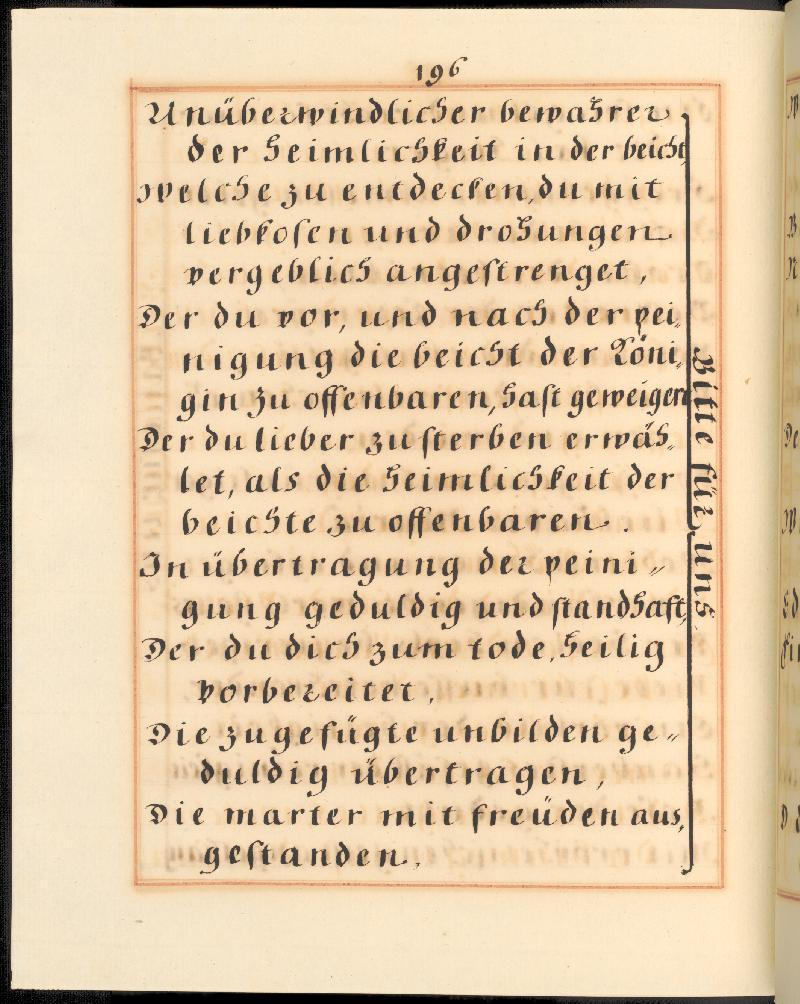 196
Unüberwindlicher bewahrer
der heimlichkeit in der beicht,
welche zu entdecken, du mit
liebkosen und drohungen
vergeblich angestrenget,
Der du vor, und nach der pei„
nigung die beicht der Köni„
gin zu offenbaren, hast geweigert
Der du lieber zu sterben erwäh„
let, als die heimlichkeit der
beichte zu offenbaren.
In übertragung der peini„
gung geduldig und standhaft,
Der du dich zum tode, heilig
vorbereitet,
Die zugefügte unbilden ge„
duldig übertragen,
Die marter mit freüden aus„
gestanden,
Bitte für uns.